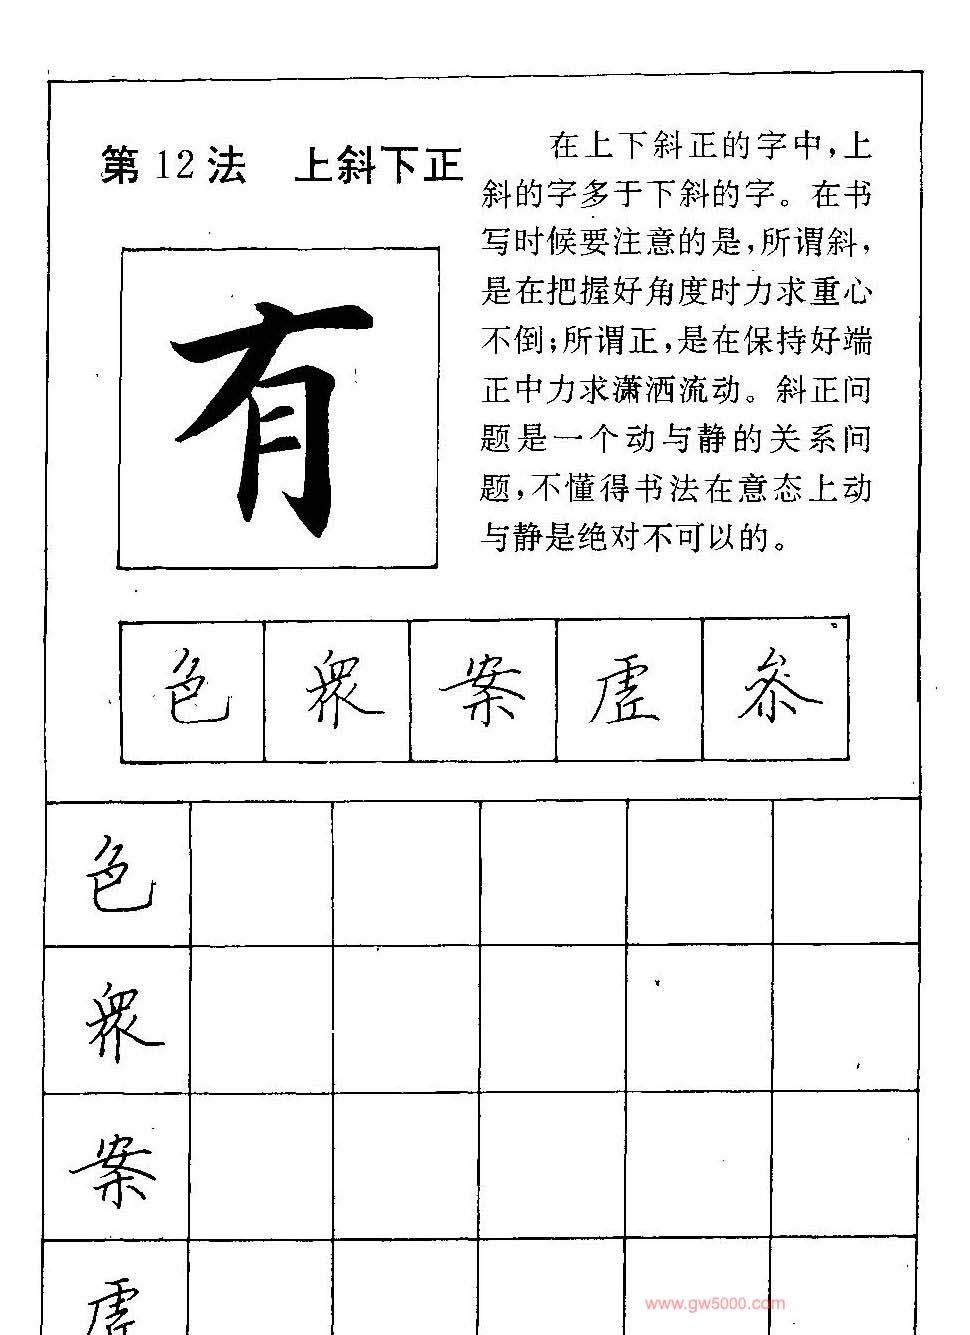 第12法 上斜下正
在上下斜正的字中，上
斜的字多于下斜的字。在书
写时候要注意的是，所谓斜，
是在把握好角度时力求重心
不倒；所谓正，是在保持好端
正中力求潇洒流动。斜正问
题是一个动与静的关系问
题，不懂得书法在意态上动
与静是绝对不可以的。
有
色 眾 案 虚 参
色
眾
案
虚
www.gw5000.com